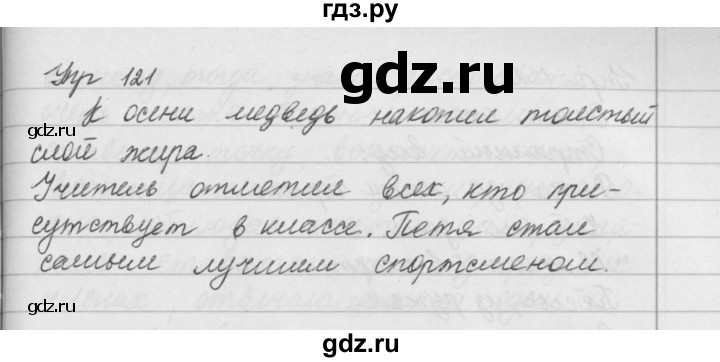 гдз.ру
gdz.ru
Упр 121
К осени медведь накопил толстый
gdz.ru
слой жира.
gdz.ru
Учитель отметил всех, кто при-
сутствует в классе. Петя стал
самым лучшим спортсменом.
gdz.ru
gdz.ru